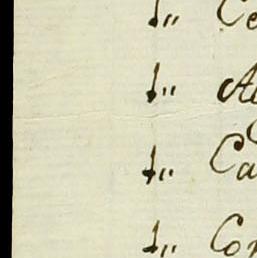 1" Ce
1" A
1" Ca
1" Cor